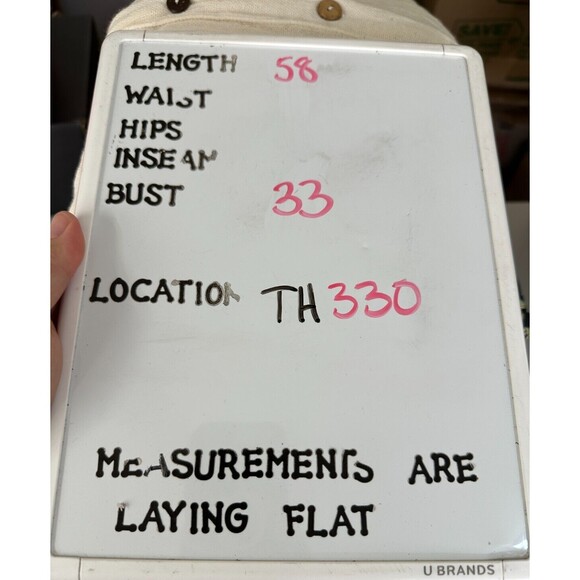 LENGTH 58
WAIST
HIPS
INSEAM
BUST 33
LOCATION TH330
MEASUREMENTS ARE
LAYING FLAT
U BRANDS